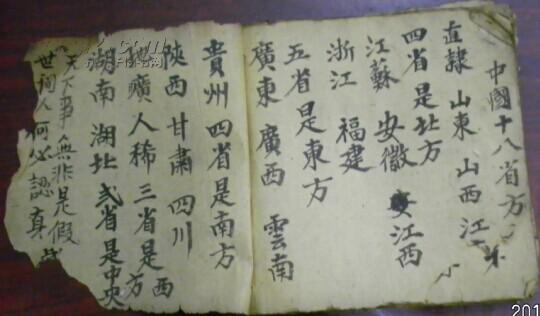 中國十八省方
直隸 山東 山西 江
四省是北方
江蘇 安徽 江西
浙江 福建
五省是東方
廣東 廣西 雲南
貴州 四省是南方
陝西 甘肅 四川
人稀 三省是西方
湖南 湖北 弍省是中央
天下事無非是假
世 人何必認真